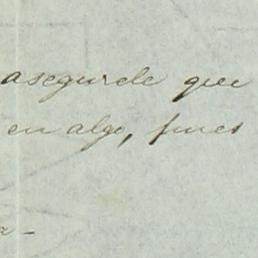 asegurele que
en algo, pues
a-